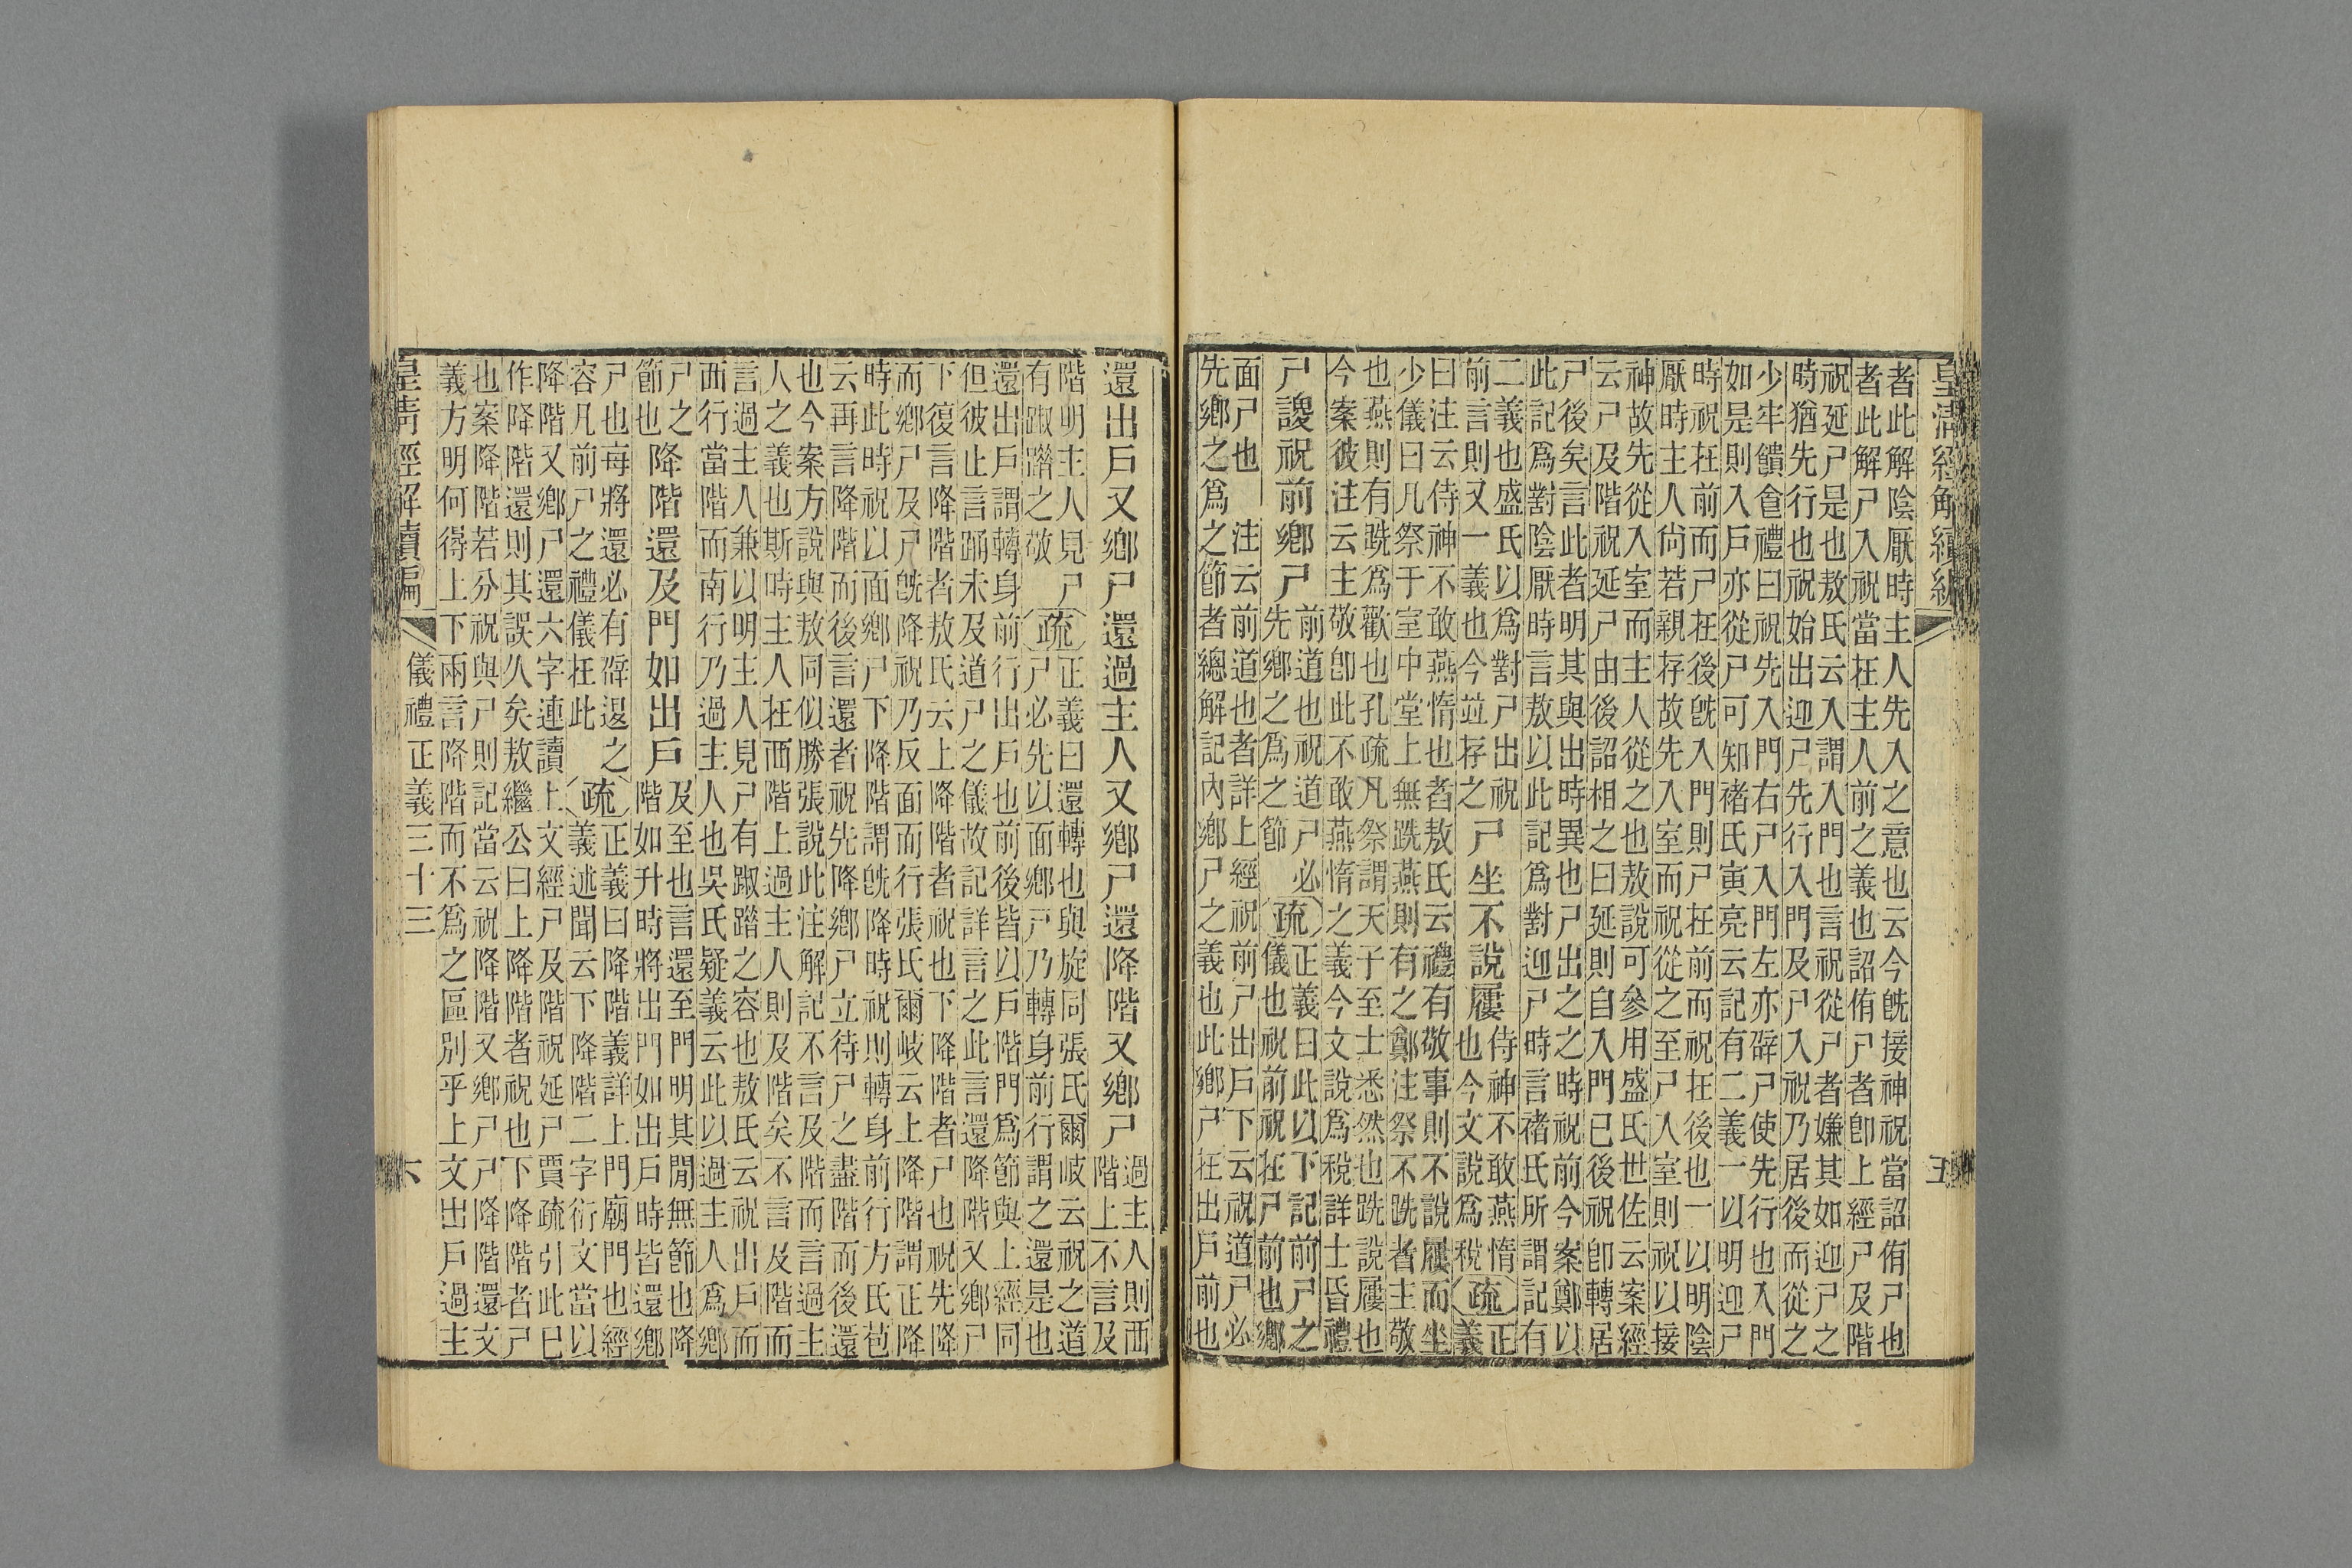 皇清經解續編
五
者此解陰厭時主人先入之意也云今旣接神祝當詔侑尸也
者此解尸入祝當在主人前之義也詔侑尸者卽上經尸及階
祝延尸是也敖氏云入謂入門也言祝從尸者嫌其如迎尸之
時猶先行也祝始出迎尸先行入門及尸入祝乃居後而從之
少牢饋食禮曰祝先入門右尸入門左亦辟尸使先行也入門
如是則入戶亦從尸可知褚氏寅亮云記有二義一以明迎尸
時祝在前而尸在後旣入門則尸在前而祝在後也一以明陰
厭時主人尙若親存故先入室而祝從之至尸入室則祝以接
神故先從入室而主人從之也敖說可參用盛氏世佐云案經
云尸及階祝延尸由後詔相之曰延則自入門已後祝卽轉居
尸後矣言此者明其與出時異也尸出之時祝前今案鄭以
此記爲對陰厭時言敖以此記爲對迎尸時言褚氏所謂記有
二義也盛氏以爲對尸出祝
前言則又一義也今竝存之
尸坐不說屨
侍神不敢燕惰
也今文說爲稅
疏
正
義
曰注云侍神不敢燕惰也者敖氏云禮有敬事則不說屨而坐
少儀曰凡祭于室中堂上無跣燕則有之鄭注祭不跣者主敬
也燕則有跣爲歡也孔疏凡祭謂天子至士悉然也跣說屨也
今案彼注云主敬卽此不敢燕惰之義今文說爲稅詳士昏禮
尸謖祝前鄉尸
前道也祝道尸必
先鄉之爲之節
疏
正義曰此以下記前尸之
儀也祝前祝在尸前也鄉
面尸也 注云前道也者詳上經祝前尸出戶下云祝道尸必
先鄉之爲之節者總解記內鄉尸之義也此鄉尸在出戶前也
還出戶又鄉尸還過主人又鄉尸還降階又鄉尸
過主人則西
階上不言及
階明主人見尸
有踧踖之敬
疏
正義曰還轉也與旋同張氏爾岐云祝之道
尸必先以面鄉尸乃轉身前行謂之還是也
還出戶謂轉身前行出戶也前後皆以戶階門爲節與上經同
但彼止言踊未及道尸之儀故記詳言之此言還降階又鄉尸
下復言降階者敖氏云上降階者祝也下降階者尸也祝先降
而鄉尸及尸旣降祝乃反面而行張氏爾岐云上降階謂正降
時此時祝以面鄉尸下降階謂旣降時祝則轉身前行方氏苞
云再言降階而後言還者祝先降鄉尸立待尸之盡階而後還
也今案方說與敖同似勝張說此注解記不言及階而言過主
人之義也斯時主人在西階上過主人則及階矣不言及階而
言過主人兼以明主人見尸有踧踖之容也敖氏云祝出戶而
西行當階而南行乃過主人也吳氏疑義云此以過主人爲鄉
尸之
節也
降階還及門如出戶
及至也言還至門明其閒無節也降
階如升時將出門如出戶時皆還鄉
尸也每將還必有辟退之
容凡前尸之禮儀在此
疏
正義曰降階義詳上門廟門也經
義述聞云下降階二字衍文當以
降階又鄉尸還六字連讀上文經尸及階祝延尸賈疏引此已
作降階還則其誤久矣敖繼公曰上降階者祝也下降階者尸
也案降階若分祝與尸則記當云祝降階又鄉尸尸降階還文
義方明何得上下兩言降階而不爲之區別乎上文出戶過主
皇清經解續編
儀禮正義三十三
六